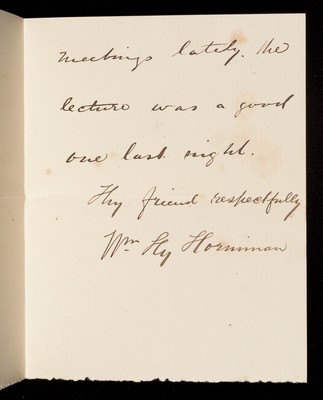 meetings lately. The
lecture was a good
one last night.
Thy friend respectfully
Wm Hy Horniman